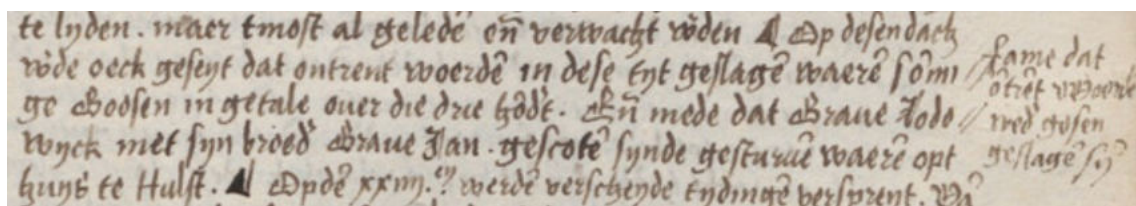 te lyden. maer tmost al geledē en̄ verwacht wʼdē ¶ Op desen dach
wʼde oeck geseyt dat ontrent woerdē in dese tyt geslagē waerē sōmi
ge Goosen in getale ouer die drie hōdʼt. En̄ mede dat Graue Lodo
wyck met syn broedʼ Graue Jan. gescotē synde gesturuē waerē opt
huys te Hulst. ¶ Opdē xxiiij.en werdē verscheyde tydingē versprent. Vā
fame dat
ōtrēt Woerdē
gosen
geslagē syn